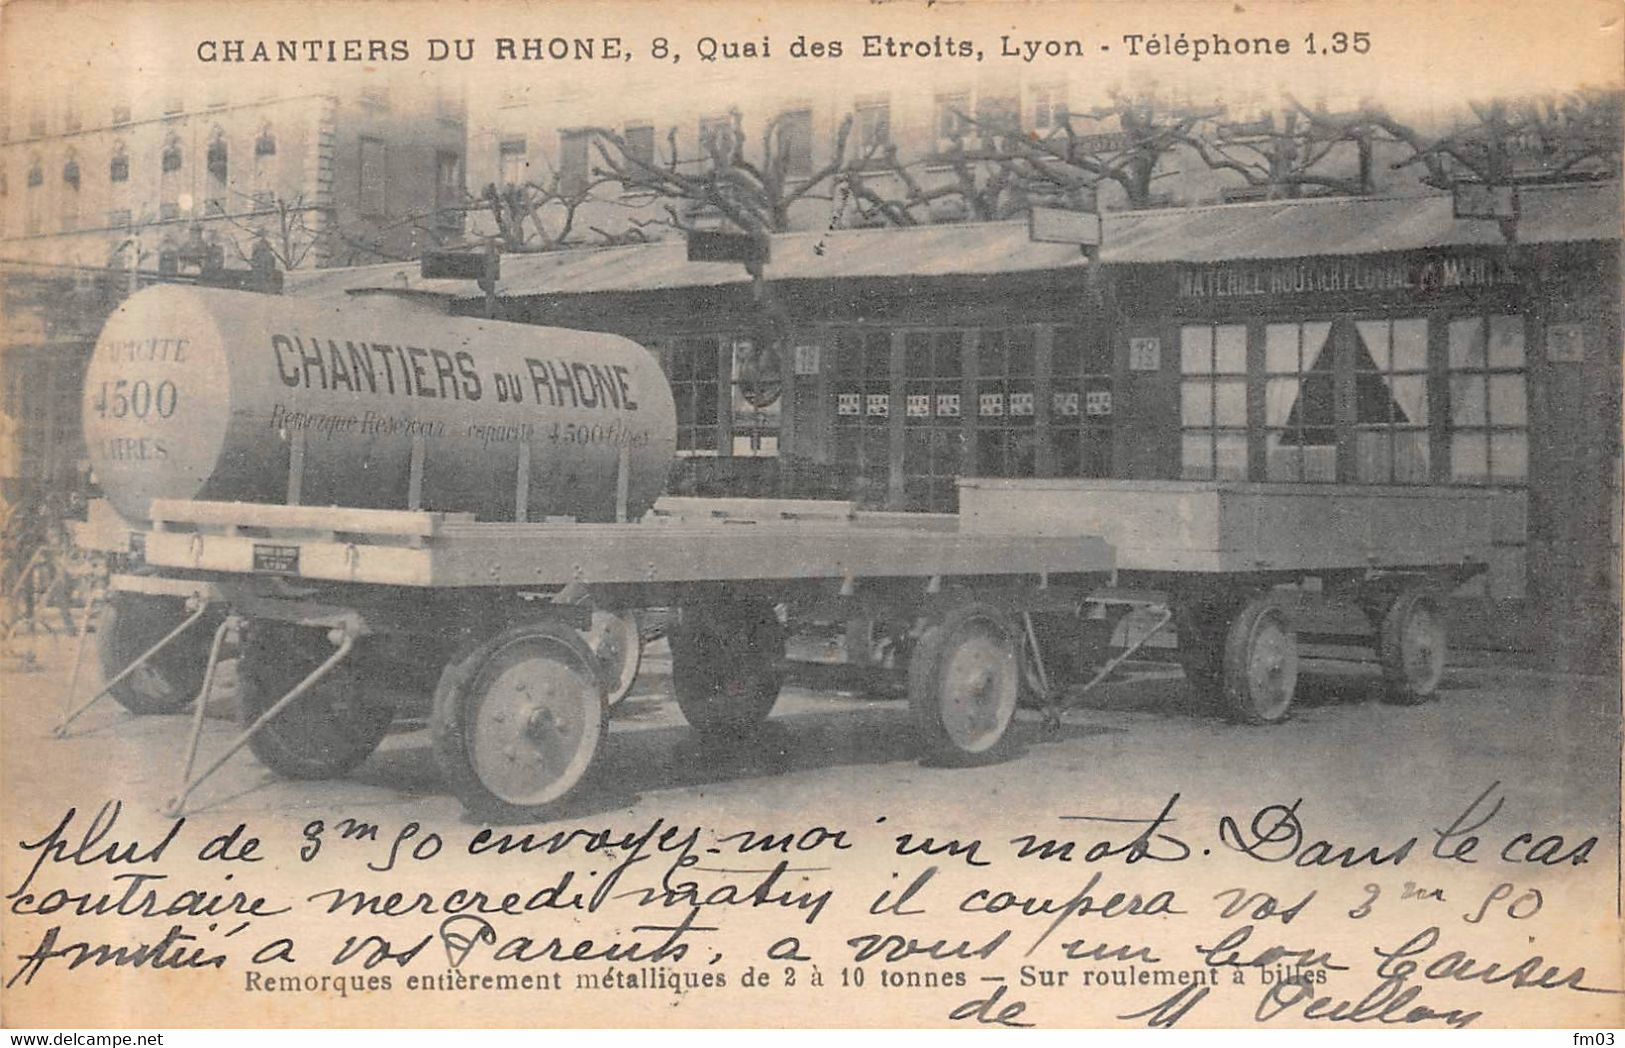 CHANTIERS DU RHONE, 8, Quai des Etroits, Lyon - Téléphone 1.35
MATERIEL ROUTIER FLUVIAL ET MARITIME
CAPACITE
4500
LITRES
CHANTIERS DU RHONE
Remorque Reservoir capacité 4500 litres
plus de 3m 50 envoyez-moi un mot. Dans le cas
contraire mercredi matin il coupera vos 3m 50
Amitiés a vos Parents, a vous un bon baiser
Remorques entièrement métalliques de 2 à 10 tonnes — Sur roulement à billes
de M
fm03
www.delcampe.net